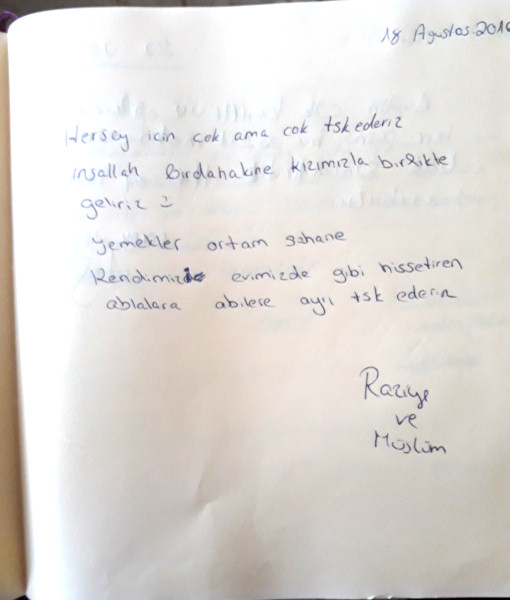 18. Agustos.2016
Hersey icin cok ama cok tsk ederiz
insallah birdahakine kızımızla birlikte
geliriz :)
yemekler ortam sahane
Kendimizi evimizde gibi hissetiren
ablalara abilere ayrı tsk ederiz
Raziye
ve
Müslüm